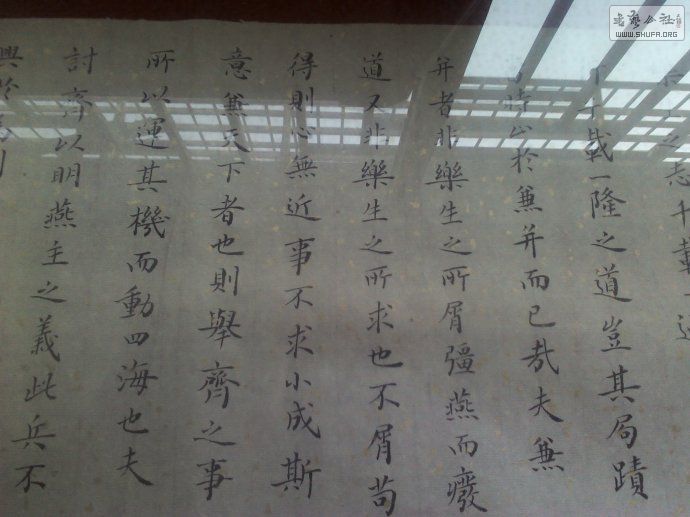 之志千載一
千載一隆之道豈其局蹟
時止於兼并而已哉夫兼
并者非樂生之所屑彊燕而癈
道又非樂生之所求也不屑苟
得則心無近事不求小成斯
意兼天下者也則舉齊之事
所以運其機而動四海也夫
討齊以明燕主之義此兵不
興於為利
書藝公社
WWW.SHUFA.ORG